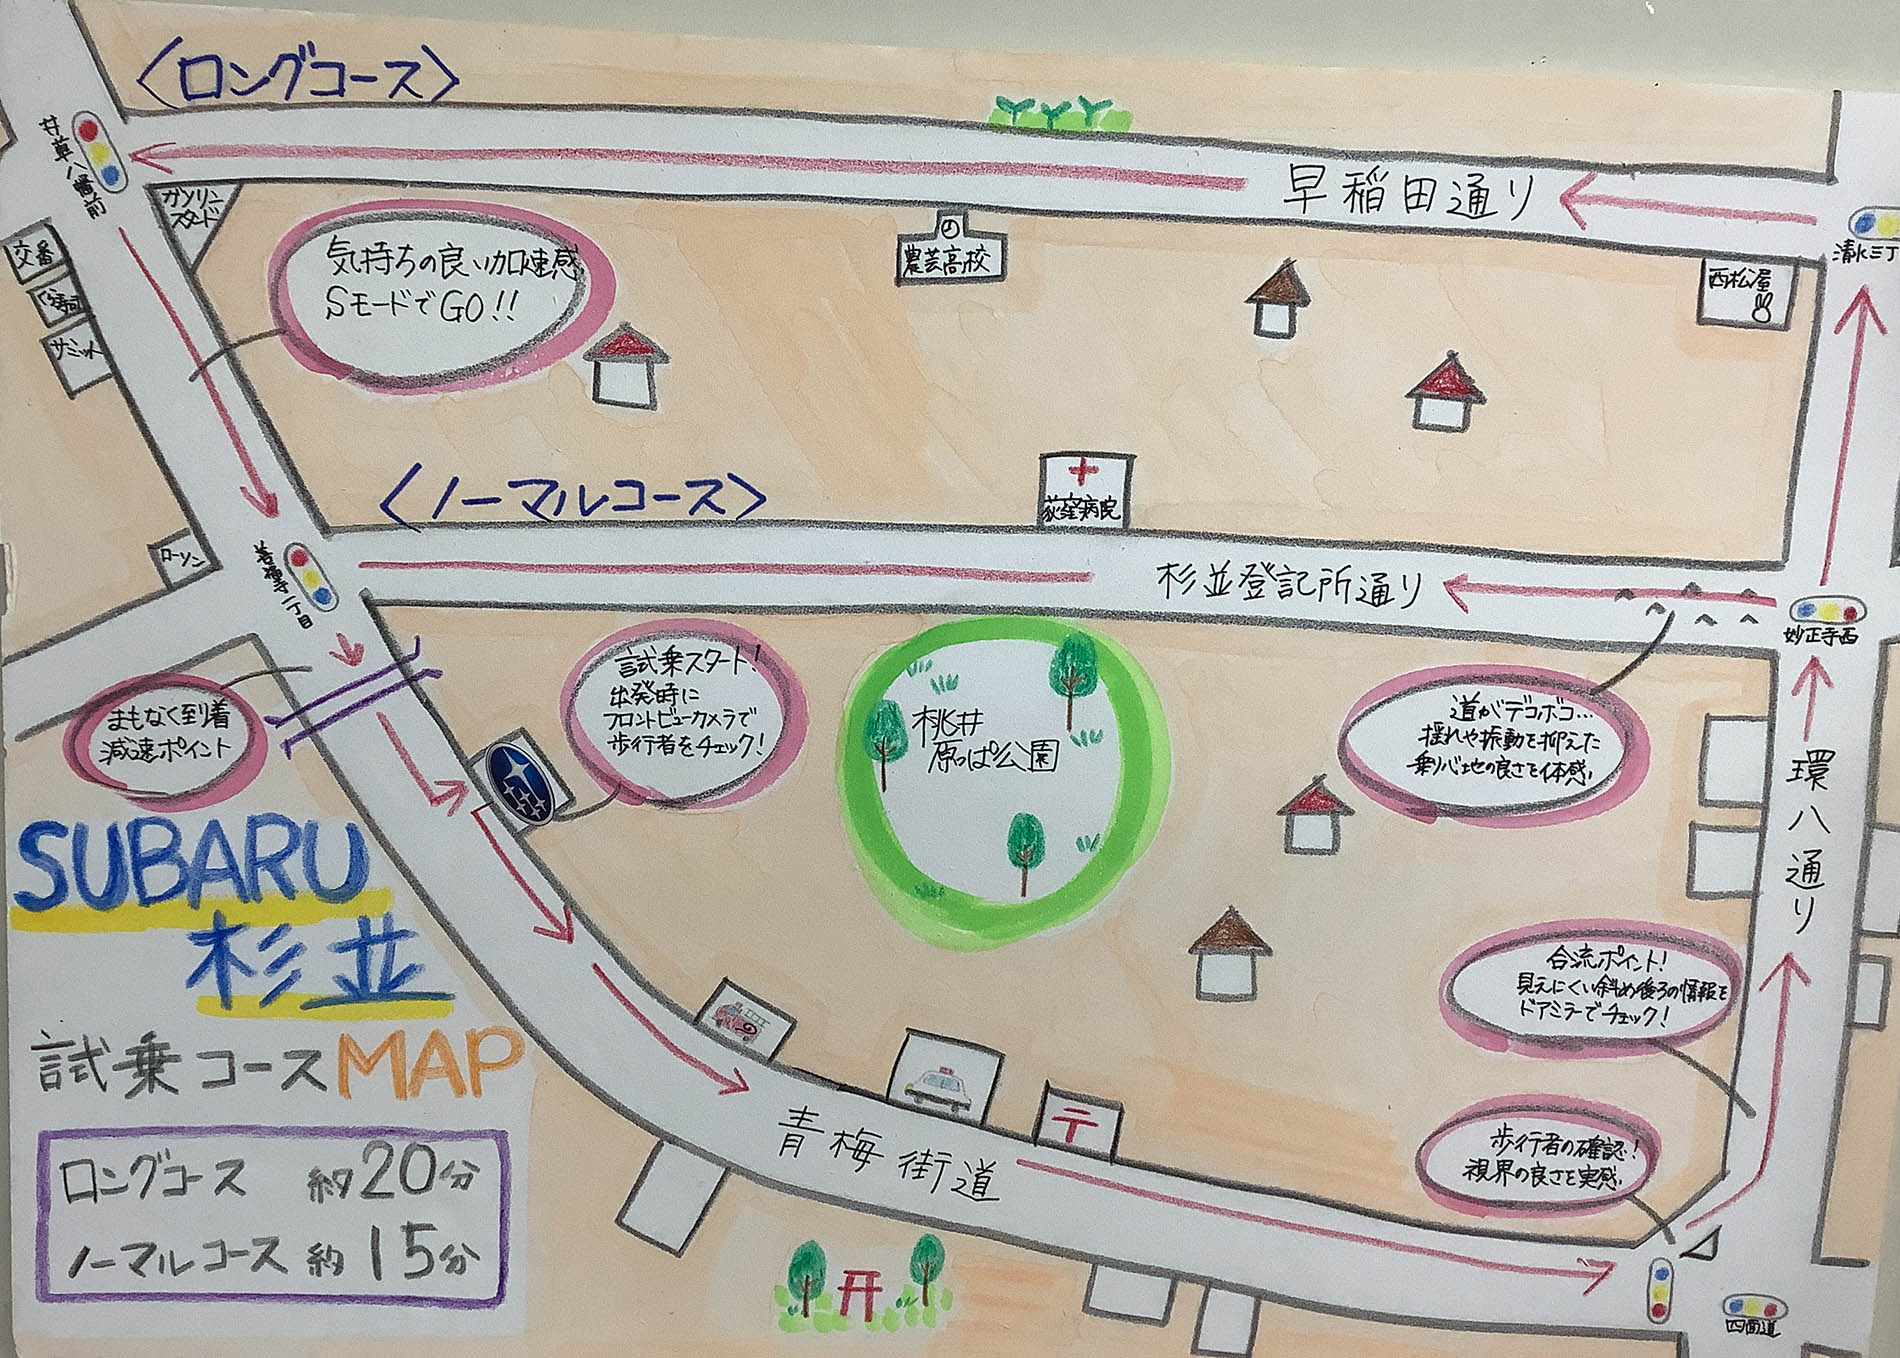 〈ロングコース〉
井草八幡前
ガソリン
スタンド
交番
サミット
気持ちの良い加速感
SモードでGO!!
農芸高校
早稲田通り
清水三丁
西松屋
〈ノーマルコース〉
荻窪病院
ローソン
善福寺一丁目
杉並登記所通り
妙正寺西
まもなく到着
減速ポイント
試乗スタート!
出発時に
フロントビューカメラで
歩行者をチェック!
桃井
原っぱ公園
道がデコボコ…
揺れや振動を抑えた
乗り心地の良さを体感
環八通り
SUBARU
杉並
試乗コースMAP
ロングコース 約20分
ノーマルコース 約15分
合流ポイント!
見えにくい斜め後ろの情報を
ドアミラーでチェック!
〒
青梅街道
歩行者の確認!
視界の良さを実感
四面道